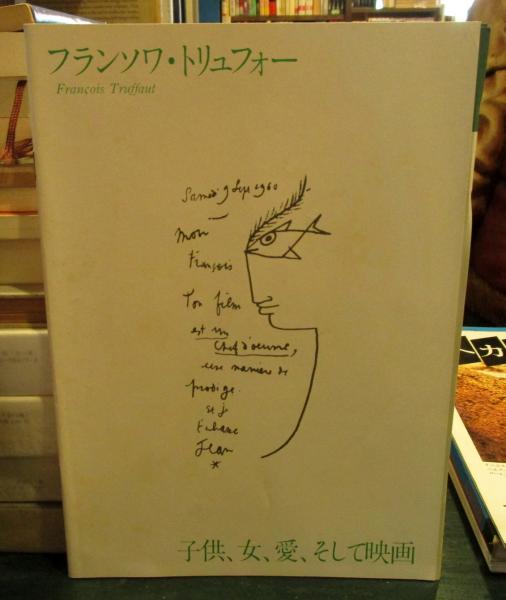 フランソワ・トリュフォー
François Truffaut
Samedi 9 Sept 1960
Mon
François
Ton film
est un
chef d'œuvre,
une manière de
prodige.
et je
t'embrasse
Jean
*
子供、女、愛、そして映画
カ